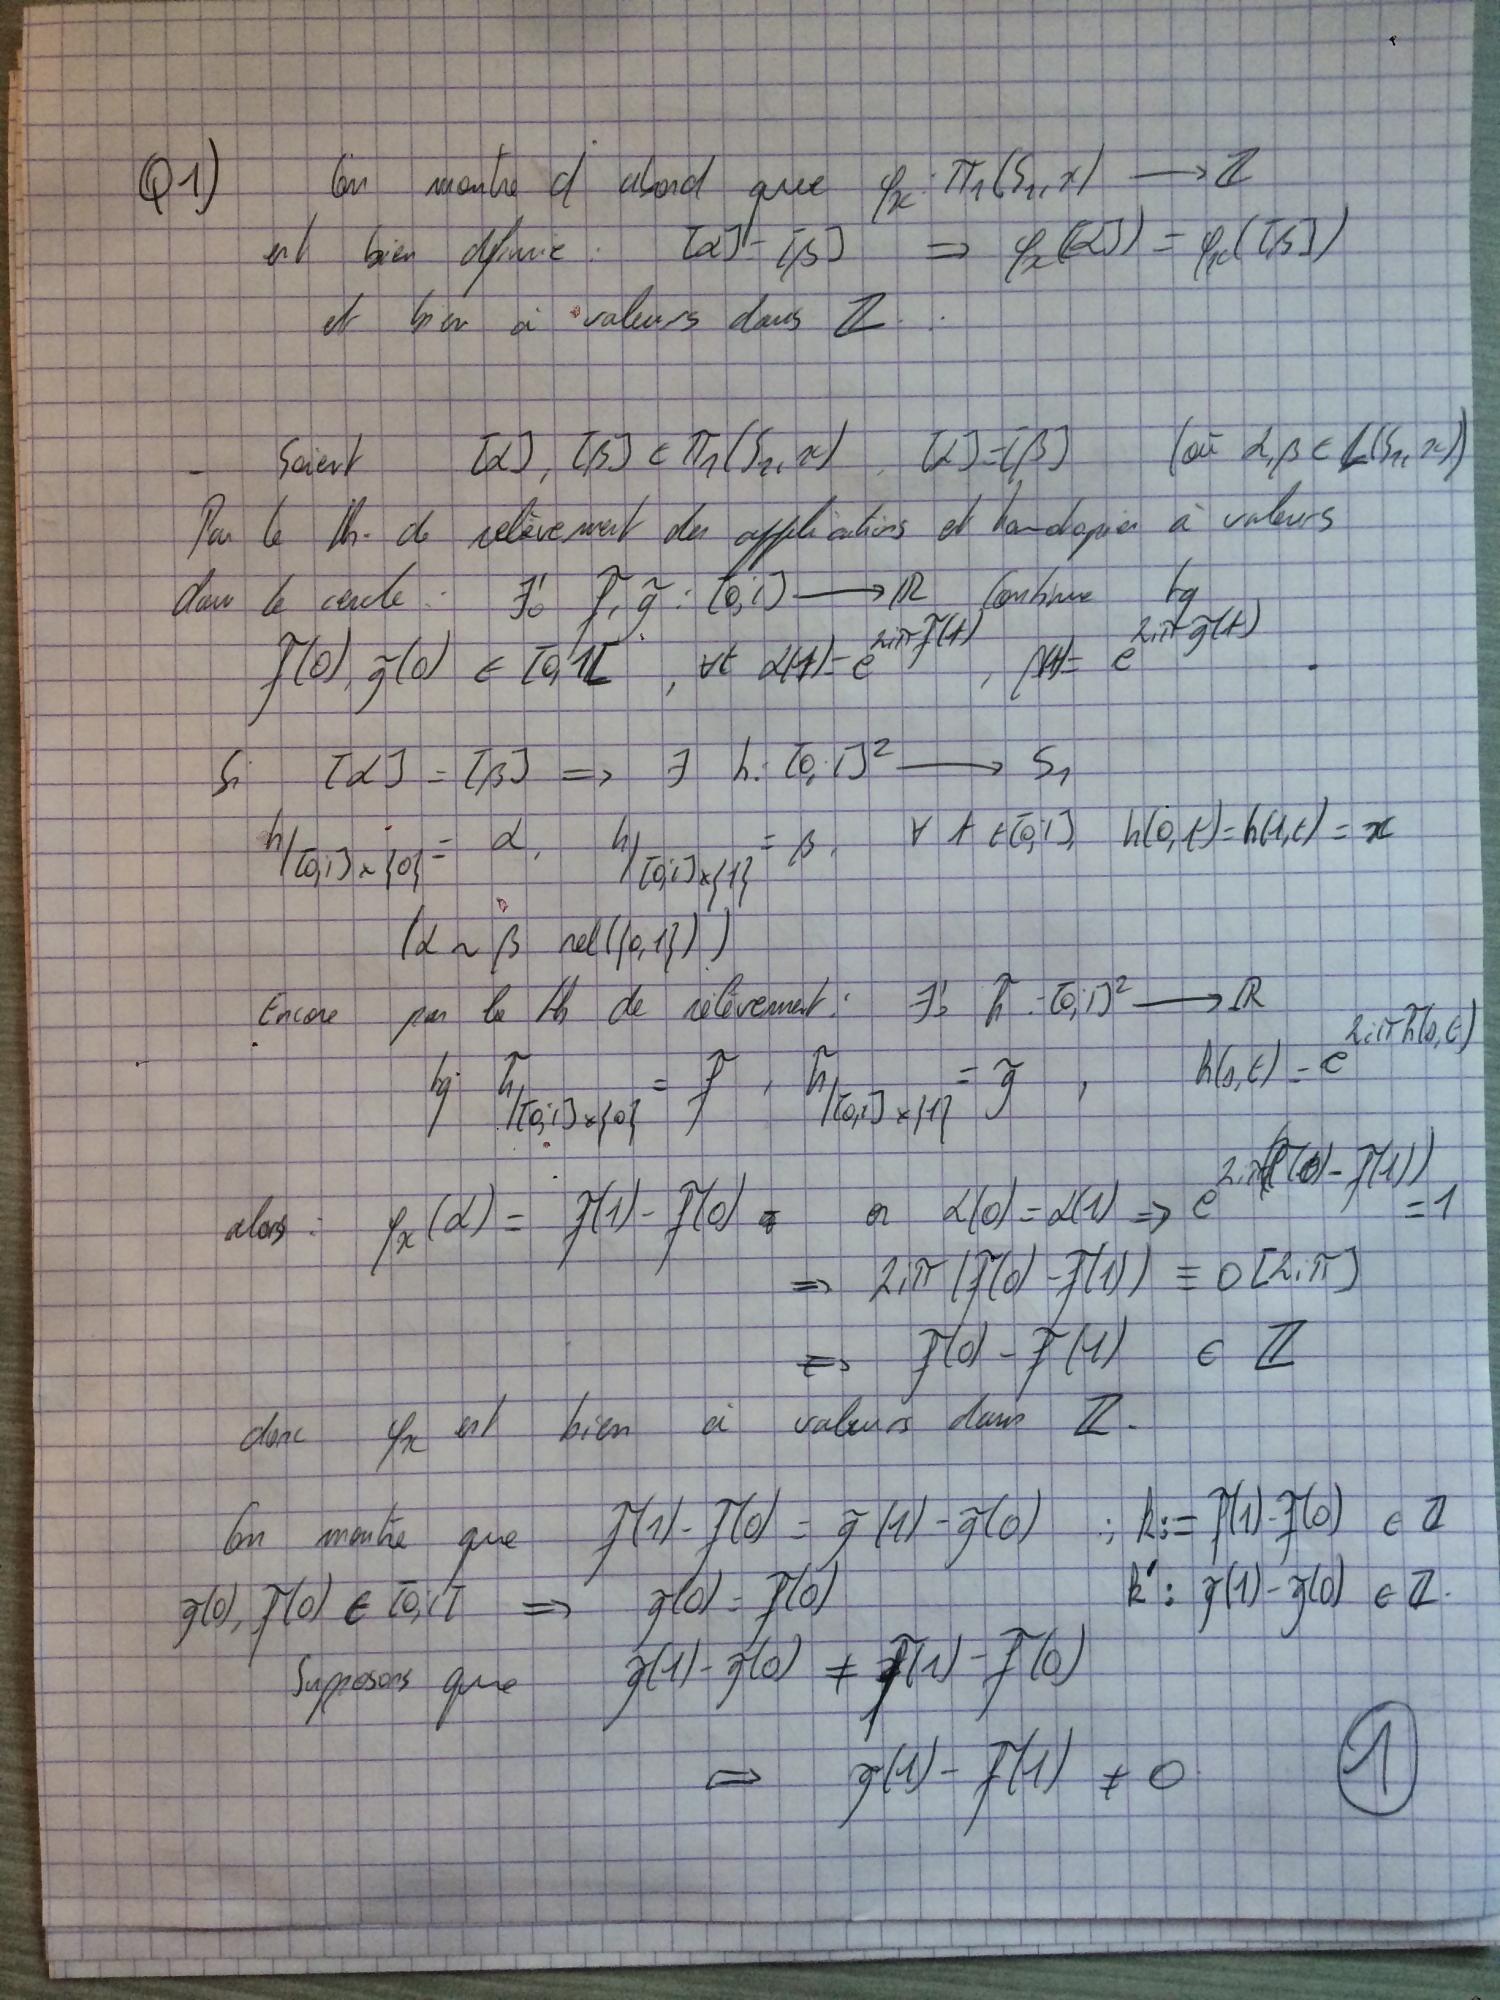 Q1) On montre d'abord que φ_x : π_1(S_1, x) ⟶ ℤ
est bien définie : [α] = [β] ⟹ φ_x([α]) = φ_x([β])
et bien à valeurs dans ℤ :
- Soient [α], [β] ∈ π_1(S_1, x), [α] = [β] (où α, β ∈ L(S_1, x))
Par le th. de relèvement des applications et homotopies à valeurs
dans le cercle : ∃! f̃, g̃ : [0,1] ⟶ ℝ continue tq
f̃(0), g̃(0) ∈ [0,1[ , ∀t α(t) = e^{2iπ f̃(t)}, β(t) = e^{2iπ g̃(t)} .
Si [α] = [β] ⟹ ∃ h : [0,1]² ⟶ S_1
h/_{[0,1]×{0}} = α, h/_{[0,1]×{1}} = β, ∀ t ∈ [0,1], h(0,t) = h(1,t) = x
(α ~ β rel({0,1}))
Encore par le th de relèvement : ∃! h̃ : [0,1]² ⟶ ℝ
tq h̃/_{[0,1]×{0}} = f̃, h̃/_{[0,1]×{1}} = g̃, h(s,t) = e^{2iπ h̃(s,t)}
alors : φ_x(α) = f̃(1) - f̃(0) or α(0) = α(1) ⟹ e^{2iπ(f̃(0) - f̃(1))} = 1
⟹ 2iπ(f̃(0) - f̃(1)) ≡ 0 [2iπ]
⟹ f̃(0) - f̃(1) ∈ ℤ
donc φ_x est bien à valeurs dans ℤ.
On montre que f̃(1) - f̃(0) = g̃(1) - g̃(0) ; k := f̃(1) - f̃(0) ∈ ℤ
g̃(0), f̃(0) ∈ [0,1[ ⟹ g̃(0) = f̃(0) k' : g̃(1) - g̃(0) ∈ ℤ.
Supposons que g̃(1) - g̃(0) ≠ f̃(1) - f̃(0)
⟹ g̃(1) - f̃(1) ≠ 0
1